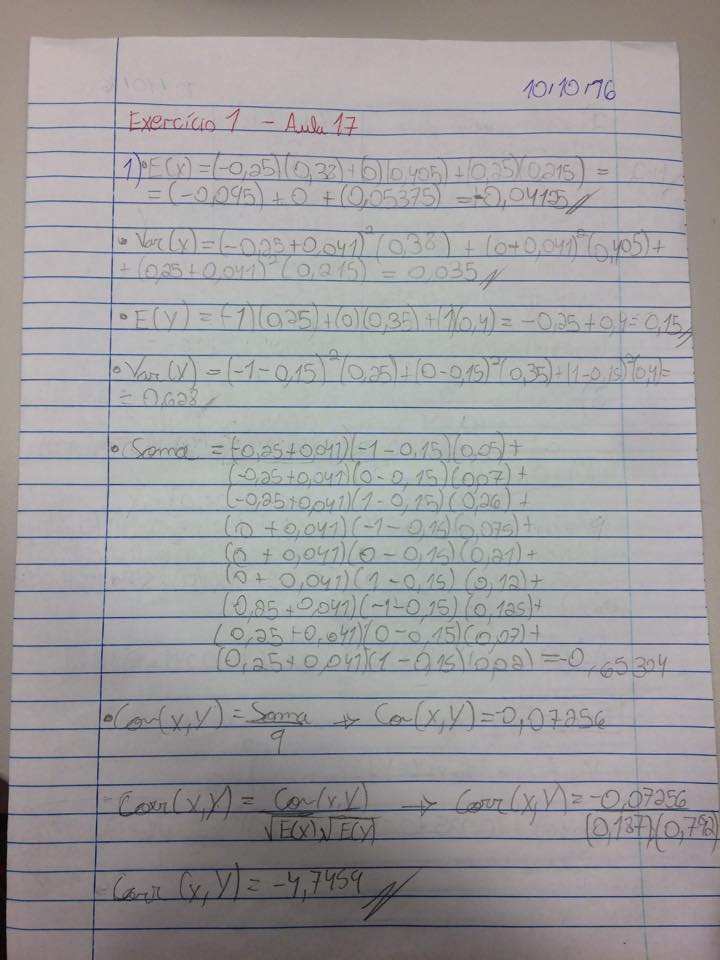 10/10/16
Exercício 1 - Aula 17
1) • E(x) = (-0,25)(0,38) + (0)(0,405) + (0,25)(0,215) =
= (-0,095) + 0 + (0,05375) = -0,04125
• Var(x) = (-0,25+0,041)²(0,38) + (0+0,041)²(0,405) +
+ (0,25+0,041)²(0,215) = 0,035
• E(Y) = (-1)(0,25) + (0)(0,35) + (1)(0,4) = -0,25 + 0,4 = 0,15
• Var(Y) = (-1-0,15)²(0,25) + (0-0,15)²(0,35) + (1-0,15)²(0,4) =
= 0,628
• Soma = (-0,25+0,041)(-1-0,15)(0,05) +
(-0,25+0,041)(0-0,15)(0,07) +
(-0,25+0,041)(1-0,15)(0,26) +
(0+0,041)(-1-0,15)(0,075) +
(0+0,041)(0-0,15)(0,21) +
(0+0,041)(1-0,15)(0,12) +
(0,25+0,041)(-1-0,15)(0,125) +
(0,25+0,041)(0-0,15)(0,07) +
(0,25+0,041)(1-0,15)(0,02) = -0,65304
• Cov(x,Y) = Soma/9 → Cov(x,Y) = -0,07256
Corr(x,Y) = Cov(x,Y)/√E(x)√E(Y) → Corr(x,Y) = -0,07256/(0,187)(0,792)
Corr(x,Y) = -4,7454